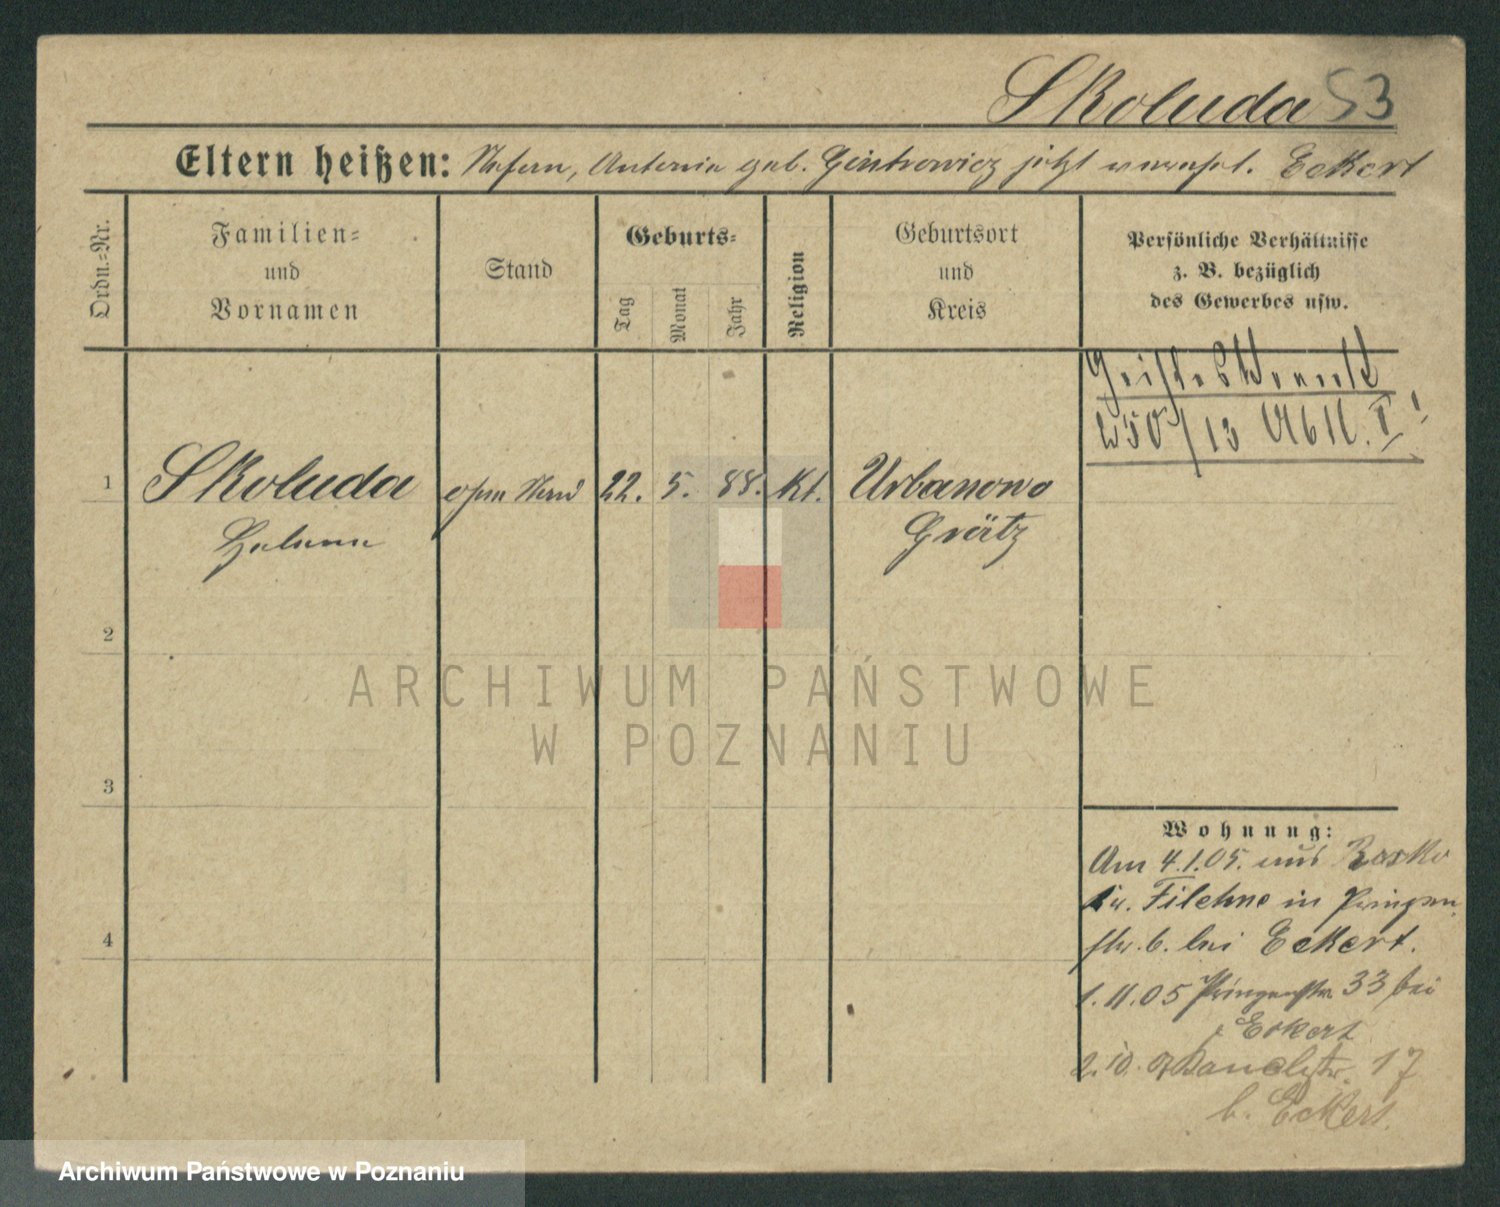 Skoluda 53
Eltern heißen: Stefan, Antonia geb. Gintrowicz jetzt verehel. Eckert
Ordn.-Nr.
Familien-
und
Vornamen
Stand
Geburts-
Tag
Monat
Jahr
Religion
Geburtsort
und
Kreis
Persönliche Verhältnisse
z. B. bezüglich
des Gewerbes usw.
Geisteskrank
/13 Abtl. I!
1 Skoluda ohne Stand 22. 5. 88. kt. Urbanowo
Helena Grätz
2
3
4
Wohnung:
Am 4.1.05. aus Rosko
Kr. Filehne in Prinzen
str. 6. bei Eckert.
1.11.05 Prinzenstr. 33 bei
Eckert
2.10. 17
b. Eckert.
ARCHIWUM PAŃSTWOWE
W POZNANIU
Archiwum Państwowe w Poznaniu